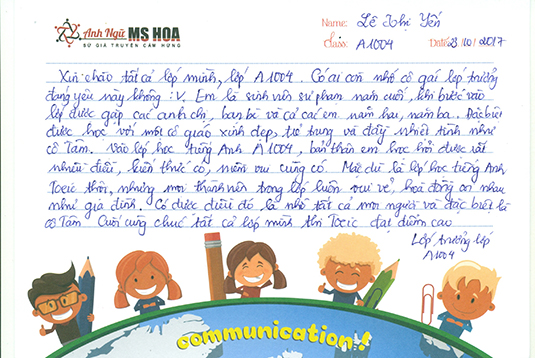 Anh Ngữ MS HOA
SỨ GIẢ TRUYỀN CẢM HỨNG
Name: Lê Thị Yến
Class: A1004 Date: 23/10/2017
Xin chào tất cả lớp mình, lớp A1004. Có ai còn nhớ cô gái lớp trưởng
đáng yêu này không :v. Em là sinh viên sư phạm năm cuối, khi bước vào
lớp được gặp các anh chị, bạn bè và cả các em năm hai, năm ba. Đặc biệt
được học với một cô giáo xinh đẹp, trẻ trung và đầy nhiệt tình như
cô Tâm. Vào lớp học tiếng Anh A1004, bản thân em học hỏi được rất
nhiều điều, kiến thức có, niềm vui cũng có. Mặc dù là lớp học tiếng Anh
Toeic thôi, nhưng mọi thành viên trong lớp luôn vui vẻ, hoà đồng với nhau
như gia đình. Có được điều đó là nhờ tất cả mọi người và đặc biệt là
cô Tâm Cuối cùng chúc tất cả lớp mình thi Toeic đạt điểm cao
Lớp trưởng lớp
A1004
communication!